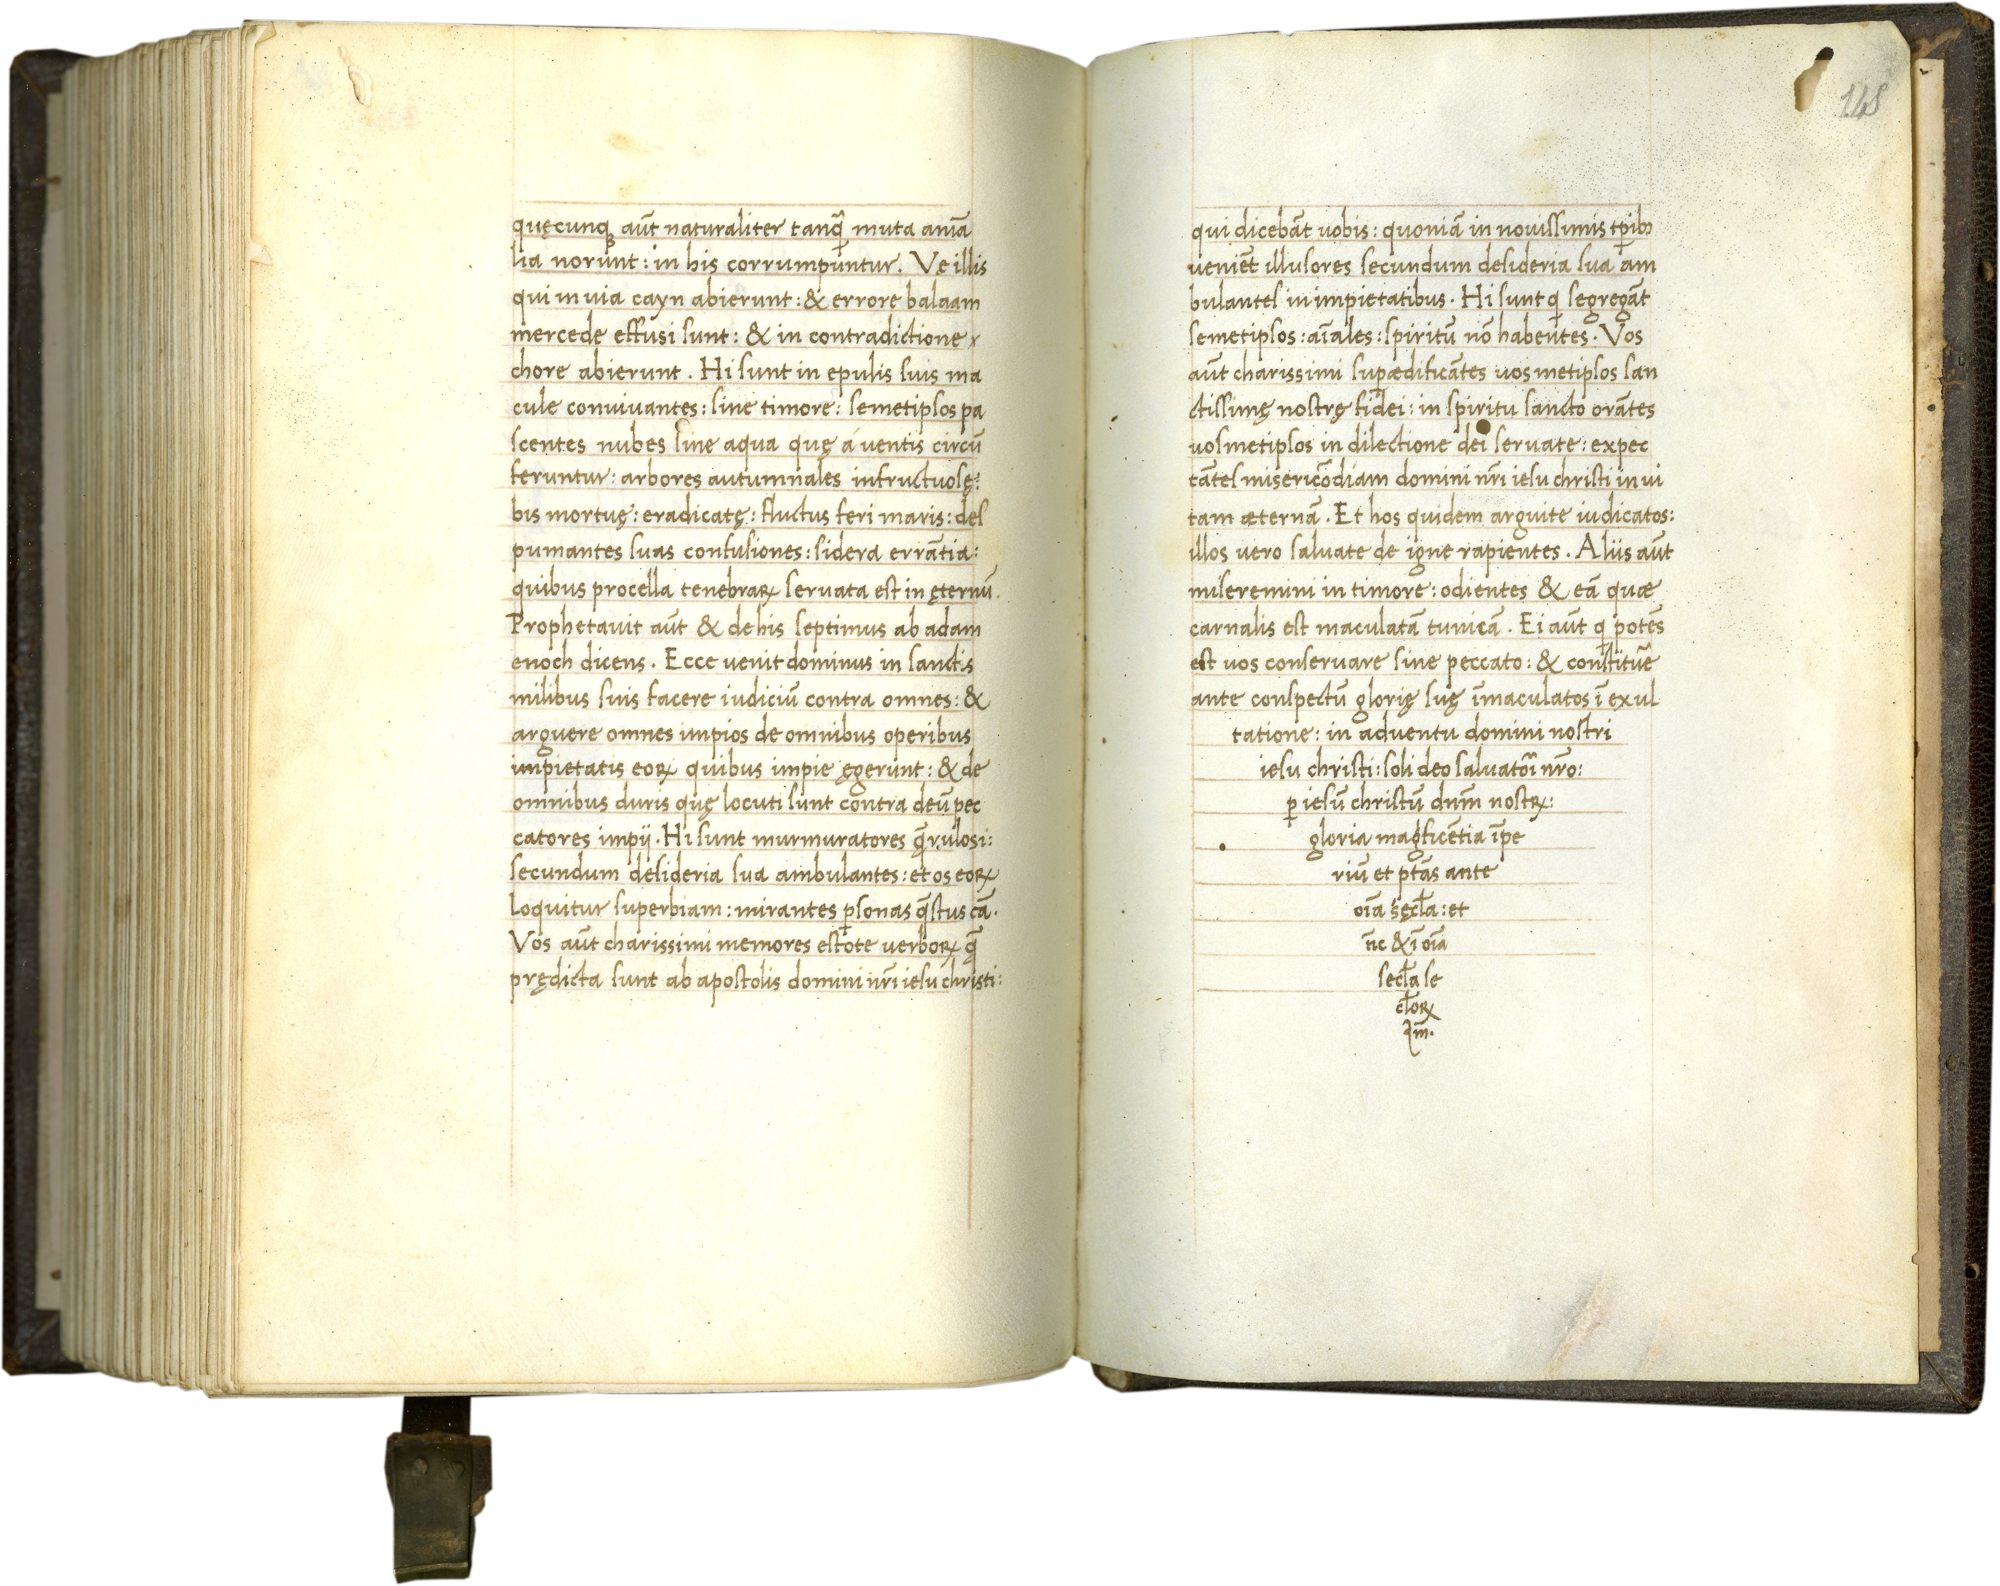 quęcunqꝫ aūt naturaliter tanq̄ muta anīa
lia norunt: in his corrumpuntur. Ve illis
qui in via cayn abierunt: & errore balaam
mercede effusi sunt: & in contradictione
chore abierunt. Hi sunt in epulis suis ma
cule convivantes: sine timore: semetipsos pa
scentes nubes sine aqua quę á ventis circū
feruntur: arbores autumnales infructuosę:
bis mortuę: eradicatę: fluctus feri maris: des
pumantes suas confusiones: sidera errātia:
quibus procella tenebraꝝ servata est in ęternū.
Prophetavit aūt & de his septimus ab adam
enoch dicens. Ecce venit dominus in sanctis
milibus suis facere iudiciū contra omnes: &
arguere omnes impios de omnibus operibus
impietatis eoꝝ quibus impie ęgerunt: & de
omnibus duris quę locuti sunt contra deū pec
catores impij. Hi sunt murmuratores q̄rulosi:
secundum desideria sua ambulantes: et os eoꝝ
loquitur superbiam: mirantes ꝑsonas q̄stus cā.
Vos aūt charissimi memores estote verboꝝ q̄
prędicta sunt ab apostolis domini nr̄i iesu christi:
148
qui dicebāt uobis: quoniā in novissimis tp̄ibꝫ
veniēt illusores secundum desideria sua am
bulantes in impietatibus. Hi sunt q segregāt
semetipsos: aīales: spiritū nō habentes. Vos
aūt charissimi suꝑædificātes vos metipsos san
ctissimę nostrę fidei: in spiritu sancto orātes
vosmetipsos in dilectione dei servate: expec
tātes misericōdiam domini nr̄i iesu christi in vi
tam æternā. Et hos quidem arguite iudicatos:
illos vero salvate de igne rapientes. Aliis aūt
miseremini in timore: odientes & eā quæ
carnalis est maculatā tunicā. Ei aūt q potēs
est vos conservare sine peccato: & constituē
ante conspectū glorię suę īmaculatos ī exul
tatione: in adventu domini nostri
iesu christi: soli deo salvatōi nr̄o:
ꝑ iesū christū dnm̄ nostꝝ:
gloria magficētia īpe
riū et ptās ante
oīa sęcla: et
nc̄ & ī oīa
secla se
cloꝝ
Am̄.